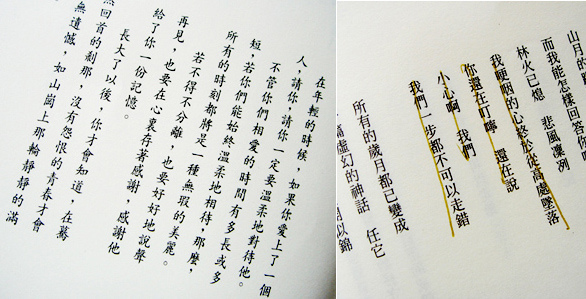 在年輕的時候，如果你愛上了一個
人，請你，請你一定要溫柔地對待他。
不管你們相愛的時間有多長或多
短，若你們能始終溫柔地相待，那麼，
所有的時刻都將是一種無瑕的美麗。
若不得不分離，也要好好地說聲
再見，也要在心裏存著感謝，感謝他
給了你一份記憶。
長大了以後，你才會知道，在驀
然回首的剎那，沒有怨恨的青春才會
無遺憾，如山崗上那輪靜靜的滿
山月的
而我能怎樣回答你
林火已熄 悲風凜冽
我哽咽的心終於從高處墜落
你還在叮嚀 還在說
小心啊 我們
我們一步都不可以走錯
所有的歲月都已變成
篇虛幻的神話 任它
似錦